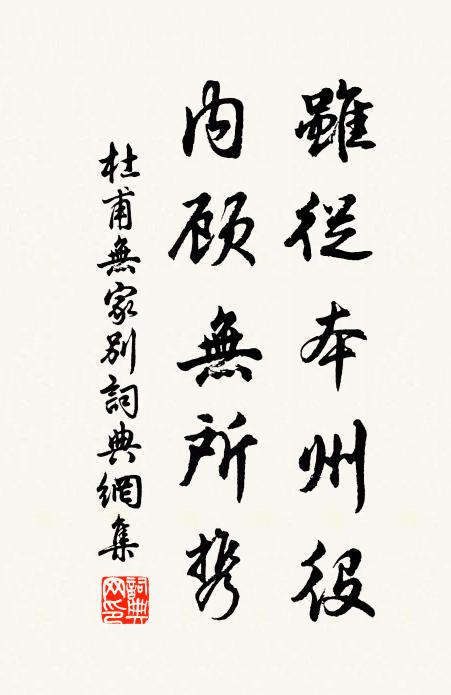 雖從本州役
内顧無所携
杜甫無家別詞典網集
詞典网印